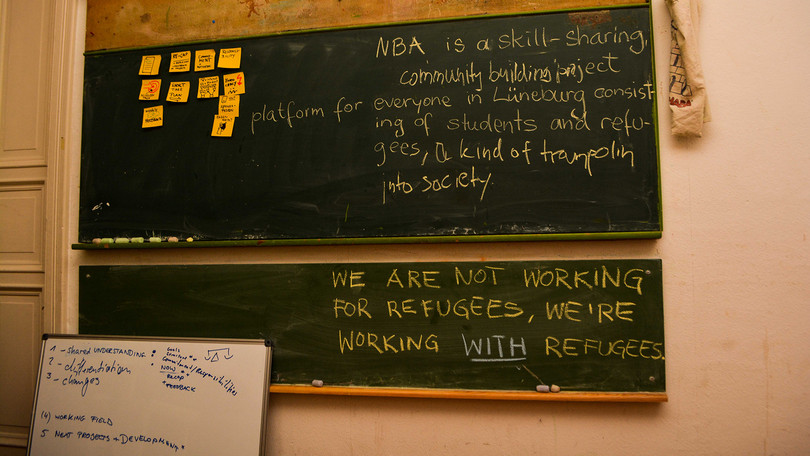 NBA is a skill-sharing,
community building project
platform for everyone in Lüneburg consist-
ing of students and refu-
gees, a kind of trampolin
into society.
WE ARE NOT WORKING
FOR REFUGEES, WE'RE
WORKING WITH REFUGEES.
1 - shared UNDERSTANDING
2 - differentiation
3 - changes
(4) WORKING FIELD
5 NEXT PROJECTS + DEVELOPMENT
GOALS
Commitment/Responsibilities
NOW
RECAP
FEEDBACK